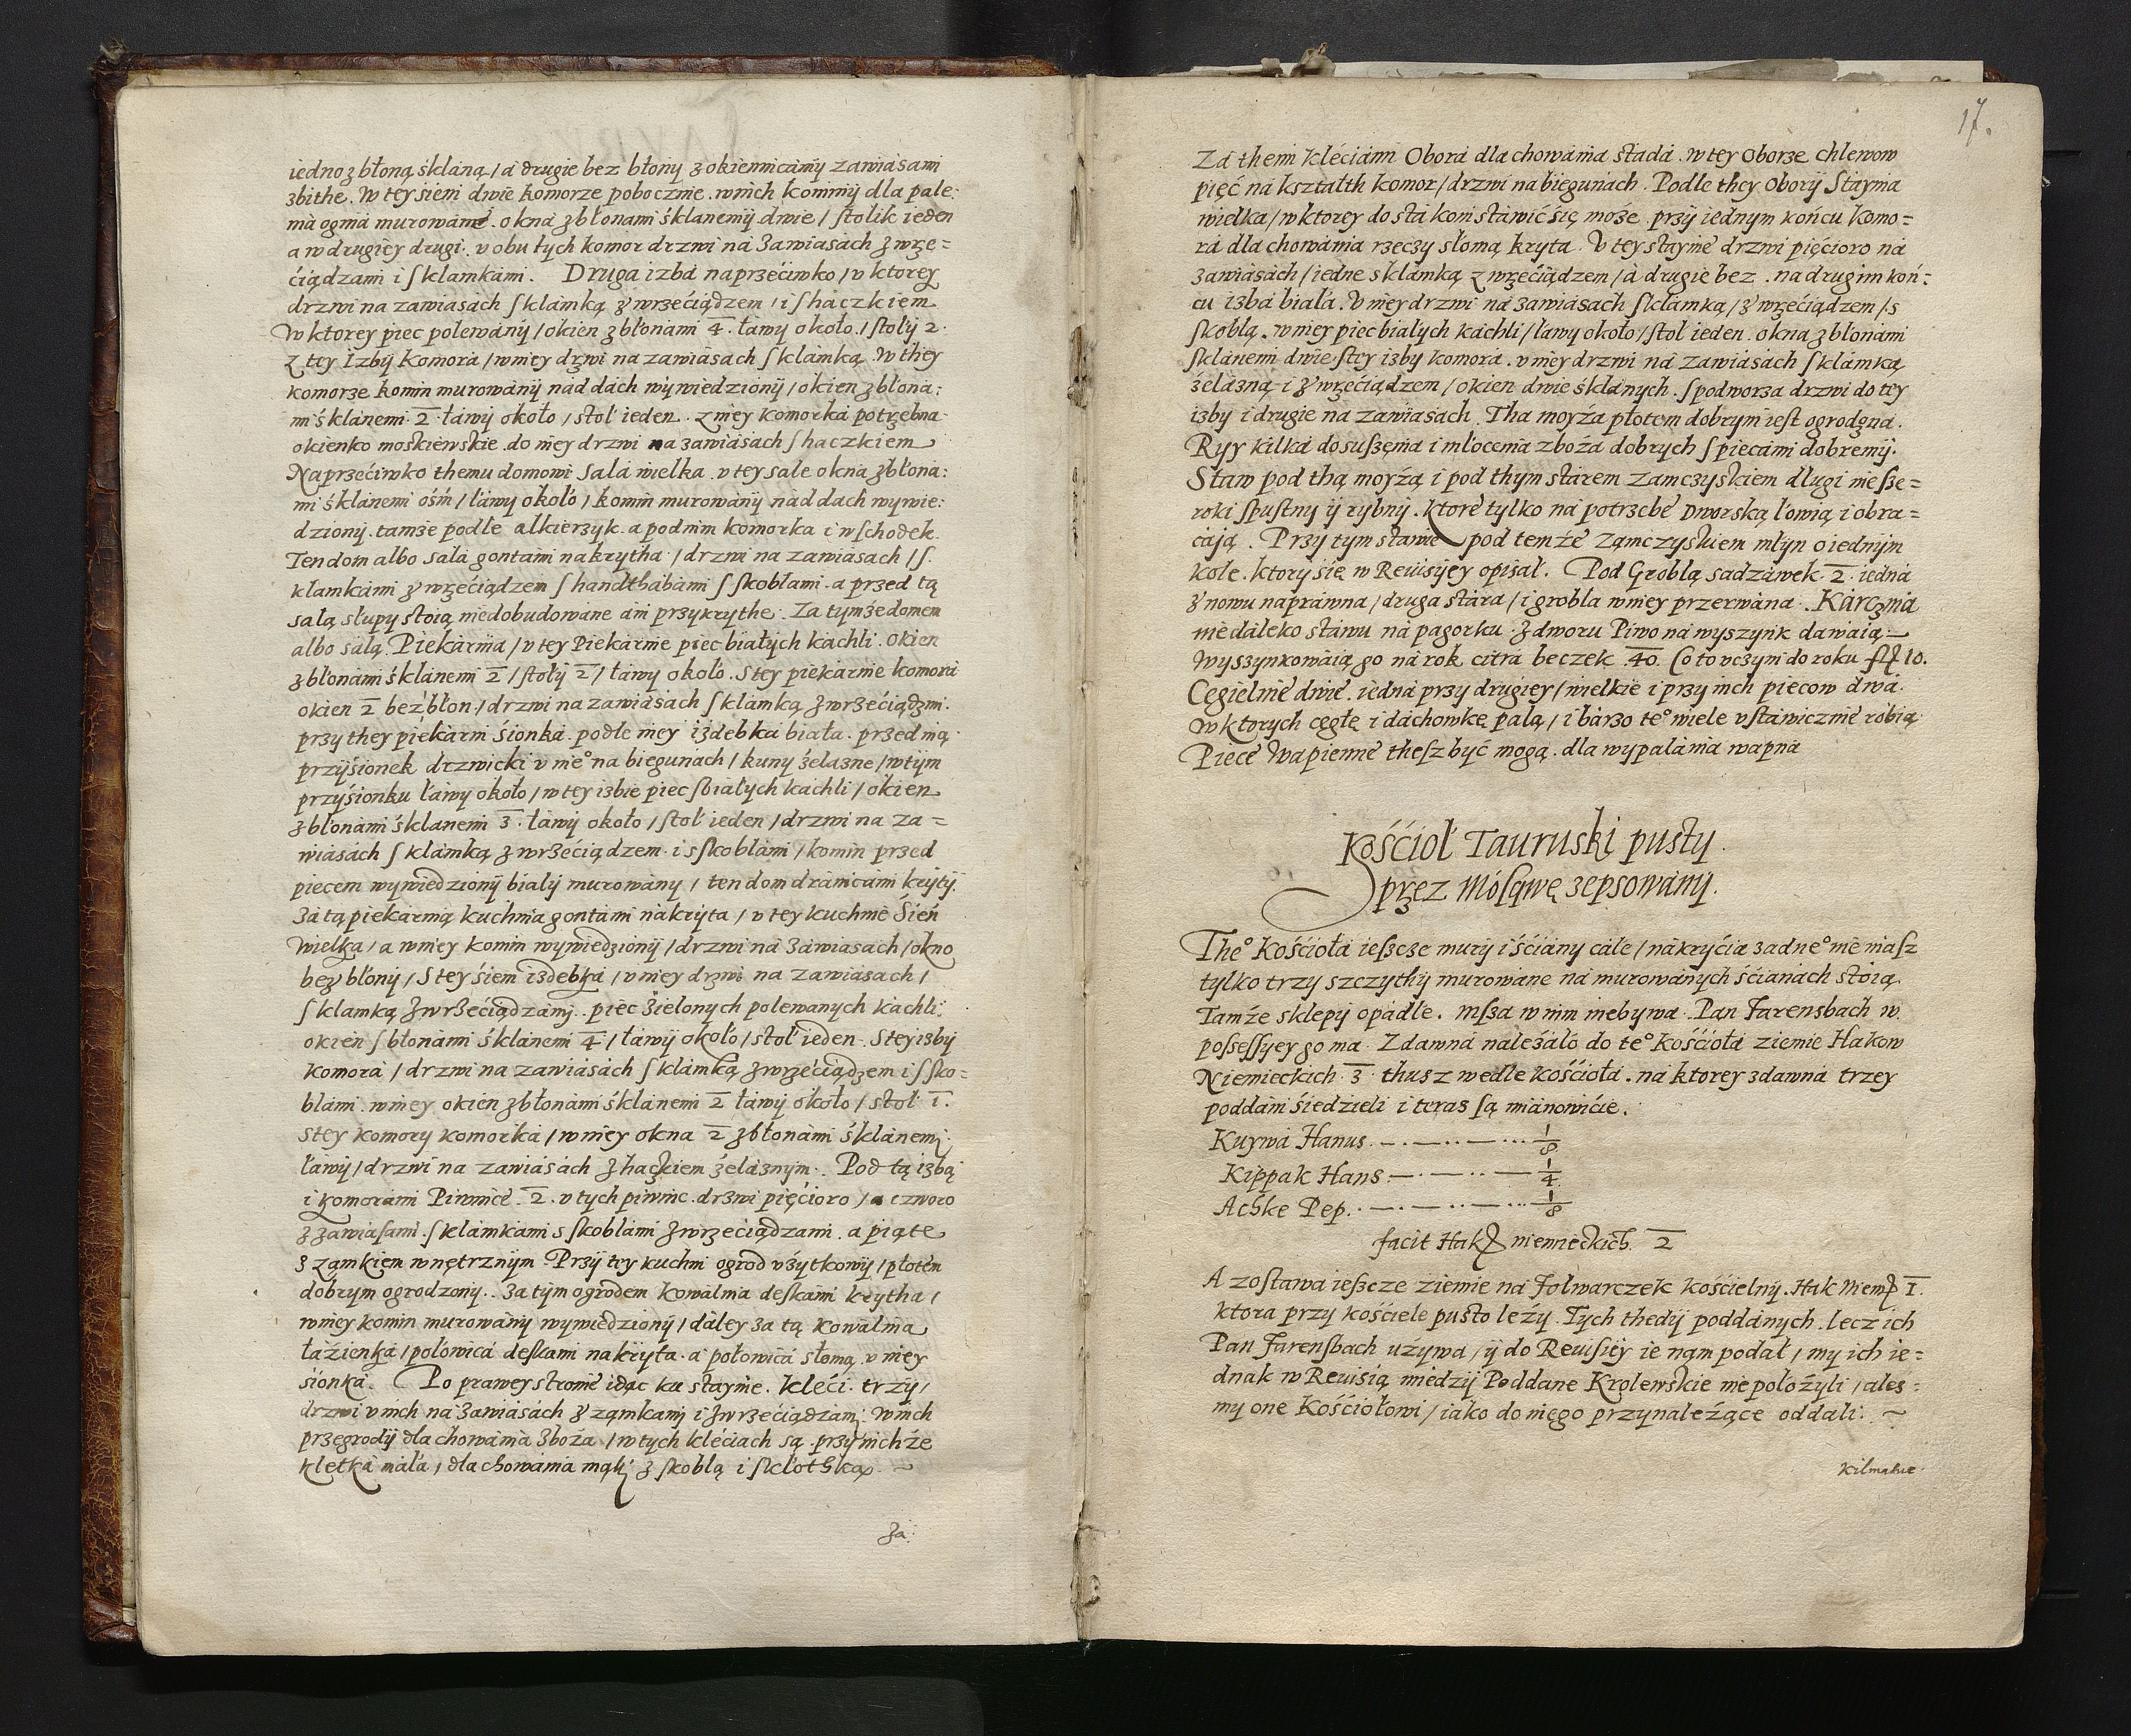 iedno z błoną śklaną / á drugie bez błony z okiennicámy zawiásami
zbithe. W tey sieni dwie komorze poboczne. w nich kominy dla pale:
niá ogniá murowáné. okná z błonami śklanemij dwie / stolik ieden
a w drugiéy drugi. v obu tych komor drzwi ná zawiasách z wrze=
ćiądzami i s klamkámi. Druga izbá naprzećiwko / v ktorey
drzwi na zawiasach s klámką z wrzećiądzem / i s haczkiem
W ktorey piec polewány / okien z błonami 4. łáwy około. / stoły 2.
Z tey Izby Komorá / w niey drzwi na zawiásach s klámką. W they
komorze komin murowány nád dách wywiedziony / okien z błoná:
mi śklanemi 2 łáwy około / stoł ieden. z niey komorká potrzebna
okienko moskiewskie do niey drzwi na zawiásach s haczkiem
Naprzećiwko themu domowi Sálá wielka. v tey sale okna z błoná:
mi śklánemi ośḿ / łáwy około / komin murowány nád dách wywie:
dziony. tamże podle alkierzyk. a pod nim komorka i wschodek.
Ten dom albo salá gontámi nakrytha / drzwi na zawiásach / s.
klamkámi z wrzećiądzem s handtbabámi s skoblami. a przed tą
salą słupy stoią niedobudowáne áni przykrythe. Za tymże domem
albo salą Piekárnia / v tey Piekárnie piec białych káchli. okien
z błonámi śklánemi 2 / stoły 2 / łáwy około. S tey piekárnie komorá
okien 2 bez błon. / drzwi na zawiásach s klámką z wrzećiądzmi.
przy they piekárni śionká. podle niey izdebká biała. przed nią
przyśionek drzwicki v nie° na biegunách / kuny żelazne / w tym
przyśionku łáwy około / w tey izbie piec s białych kachli / okien
z błonámi śklanemi 3. łáwy około / stoł ieden / drzwi na zá=
wiásách s klámką z wrzećiądzem. i s skoblámi / komin przed
piecem wywiedziony biały murowány / ten dom dránicámi kryty.
Zá tą piekárnią kuchnia gontámi nákryta / v tey kuchnie Śień
wielka / a w niey komin wywiedziony / drzwi ná zawiasach / okno
bez błony / S tey śieni izdebka / v niey drzwi na zawiásach /
s klamką z wrzećiądzámj. piec zielonych polewanych kachli:
okien s błonámi śklánemi 4 / łáwy około / stoł ieden. S tey izby
komorá / drzwi na zawiásách s klámką z wrzećiądzem i s sko=
blámi. w niey okien z błonámi śklánemi 2 łáwy około / stoł 1.
S tey komory komorká / w niey okna 2 z błonámi śklánemj.
łáwy / drzwi na zawiásach z haczkiem żelaznym. Pod tą izbą
i komorámi Piwnice 2. v tych piwnic. drzwi pięćioro / a czworo
z zawiasámi. s klámkámi s skoblámi z wrzeciądzami. a piąte
z zamkiem wnętrznym Przy tey kuchni ogrod vżytkowy / płotém
dobrym ogrodzony.. Zá tym ogrodem Kowálnia deskámi krytha /
w niey komin murowány wywiedziony / dáley za tą kowálnią
łáźienka / połowicá deskami nakryta. á połowicá słomą. v niey
śionká. Po prawey stronie idąc ku stáynie. Kleći. trzy /
drzwi v nich ná zawiásách z zamkamj i z wrzećiądzámj. W nich
przegrody dla chowániá zboża / w tych kléćiach są. przy nichże
kletka máłá / dla chowánia mąkj z skoblą i s kłothką. ~
Zá:
17.
Zá themi kléćiámi Oborá dla chowániá stádá. w tey Oborze chlewow
pięć ná kształth komor / drzwi na biegunách. Podle they Obory Stáynia
wielka / w ktorey do stá koni stáwić się może. przy iednym końcu komo=
rá dla chowánia rzeczy słomą kryta. V tey stáynie drzwi pięćioro ná
zawiásách / iedne s klámką z wrzećiądzem / á drugie bez. na drugim koń:
cu izbá białá. V niey drzwi ná zawiásách s klámką / z wrzećiądzem / s
skoblą. w niey piec białych káchli / łáwy około / stoł ieden. okna z błonámi
śklánemi dwie. s tey izby komorá. v niey drzwi ná zawiásách s klámką
żelázną i z wrzećiądzem / okien dwie śklánych. s podworza drzwi do tey
izby i drugie na zawiasách. Tha moyżá płotem dobrym iest ogrodzna.
Ryy kilká do suszenia i młocenia zboża dobrych s piecámi dobremij.
Staw pod thą moyżą i pod thym stárem zamczyskiem długi nie sze=
roki spustny y rybny. ktoré tylko ná potrzebé Dworską łowią i obra=
cáją. Przy tym stáwie pod temże Zamczyskiem młyn o iednym
kole. ktory się w Reuisyey opisał. Pod Groblą sadzáwek. 2. iedná
z nowu nápráwna / druga stára / i grobla w niey przerwána. Kárczmá
niedáleko stáwu ná pagorku. z dworu Piwo ná wyszynk dawáią—
wyszynkowáią go ná rok citra beczek 40. Co to vczyni do roku fł 10.
Cegielnie dwie. iedná przy drugiey / wielkie i przy nich piecow dwá.
W ktorych cegłę i dáchowkę palą / i bárzo te° wiele vstáwicznie robią
Piece wapienné thesz być mogą. dla wypalánia wapná
Kośćioł Tauruski pusty.
przez Moskwę zepsowány.
The° Kośćiołá ieszcze mury i śćiány cáłe / nákryćia żadne° nie mász
tylko trzy szczythy murowáne ná murowánych śćianách stoią.
Tamże sklepy opádłe. msza w nim nie bywa. Pan Farensbach w
possessyey go ma. Zdawná należáło do te° Kośćiołá ziemie Hakow
Niemieckich 3. thusz wedle kośćiołá. ná ktorey zdawná trzey
poddáni śiedzieli i teras są mianowićie.
Kuywá Hanus. —.—..—...1/8
Kippak Hans —.—..—1/4
Achke Pep. .—.—..—...1/8
facit Hak niemieckich. 2
A zostawa ieszcze ziemie ná Folwarczek kośćielny. Hak Niem 1.
ktora przy kośćiele pusto leży. Tych thedy poddánych. lecz ich
Pan Farensbach używa / y do Reuisiey ie nąm podał / my ich ie=
dnak w Reuisią miedzy Poddane Krolewskie nie położyli / ales=
my one Kośćiołowi / iáko do niego przynależące oddáli: ~
Kilmakue